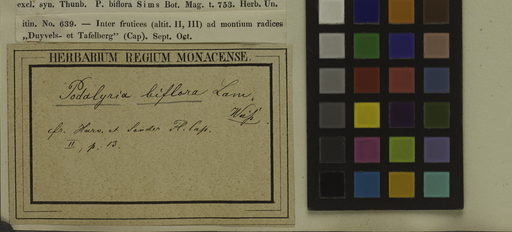 excl. syn. Thunb. P. biflora Sims Bot. Mag. t. 753. Herb. Un.
itin. No. 639. — Inter frutices (altit. II, III) ad montium radices
„Duyvels- et Tafelberg” (Cap). Sept. Oct.
HERBARIUM REGIUM MONACENSE.
Podalyria biflora Lam.
cfr. Harv. et Sonder Fl. Cap.
II, p. 13.